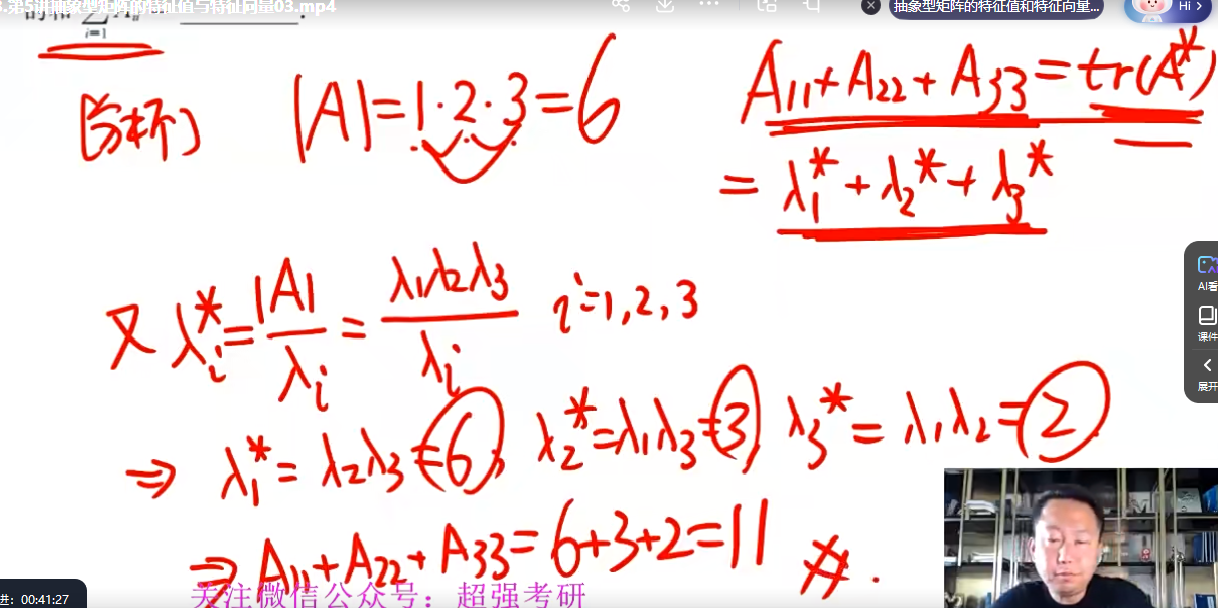 3.第5讲抽象型矩阵的特征值与特征向量03.mp4
抽象型矩阵的特征值和特征向量...
Hi >
的和 ∑ Aᵢᵢ
i=1
[分析] |A|=1·2·3=6
A₁₁+A₂₂+A₃₃=tr(A*)
=λ₁*+λ₂*+λ₃*
又 λᵢ*=|A|/λᵢ=λ₁λ₂λ₃/λᵢ i=1,2,3
⇒ λ₁*=λ₂λ₃=6, λ₂*=λ₁λ₃=3, λ₃*=λ₁λ₂=2
⇒ A₁₁+A₂₂+A₃₃=6+3+2=11 #.
关注微信公众号：超强考研
AI看
课件
展开
进：00:41:27